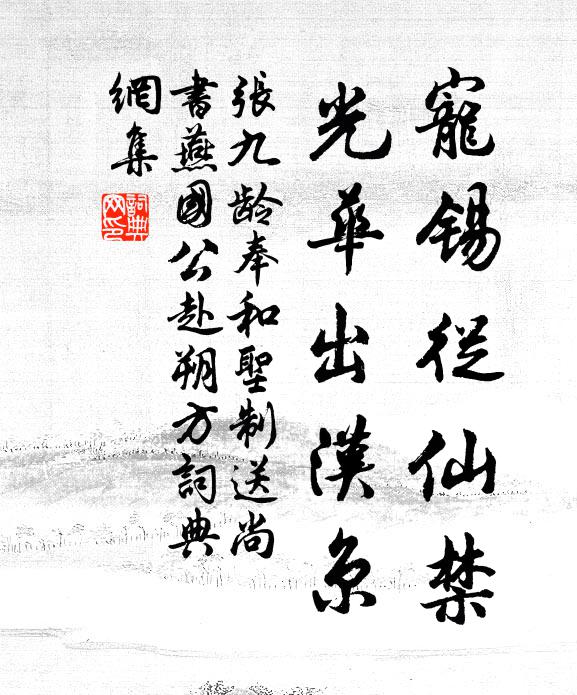 寵錫從仙禁
光華出漢京
張九龄奉和聖制送尚
書燕國公赴朔方詞典
網集
詞典
网印